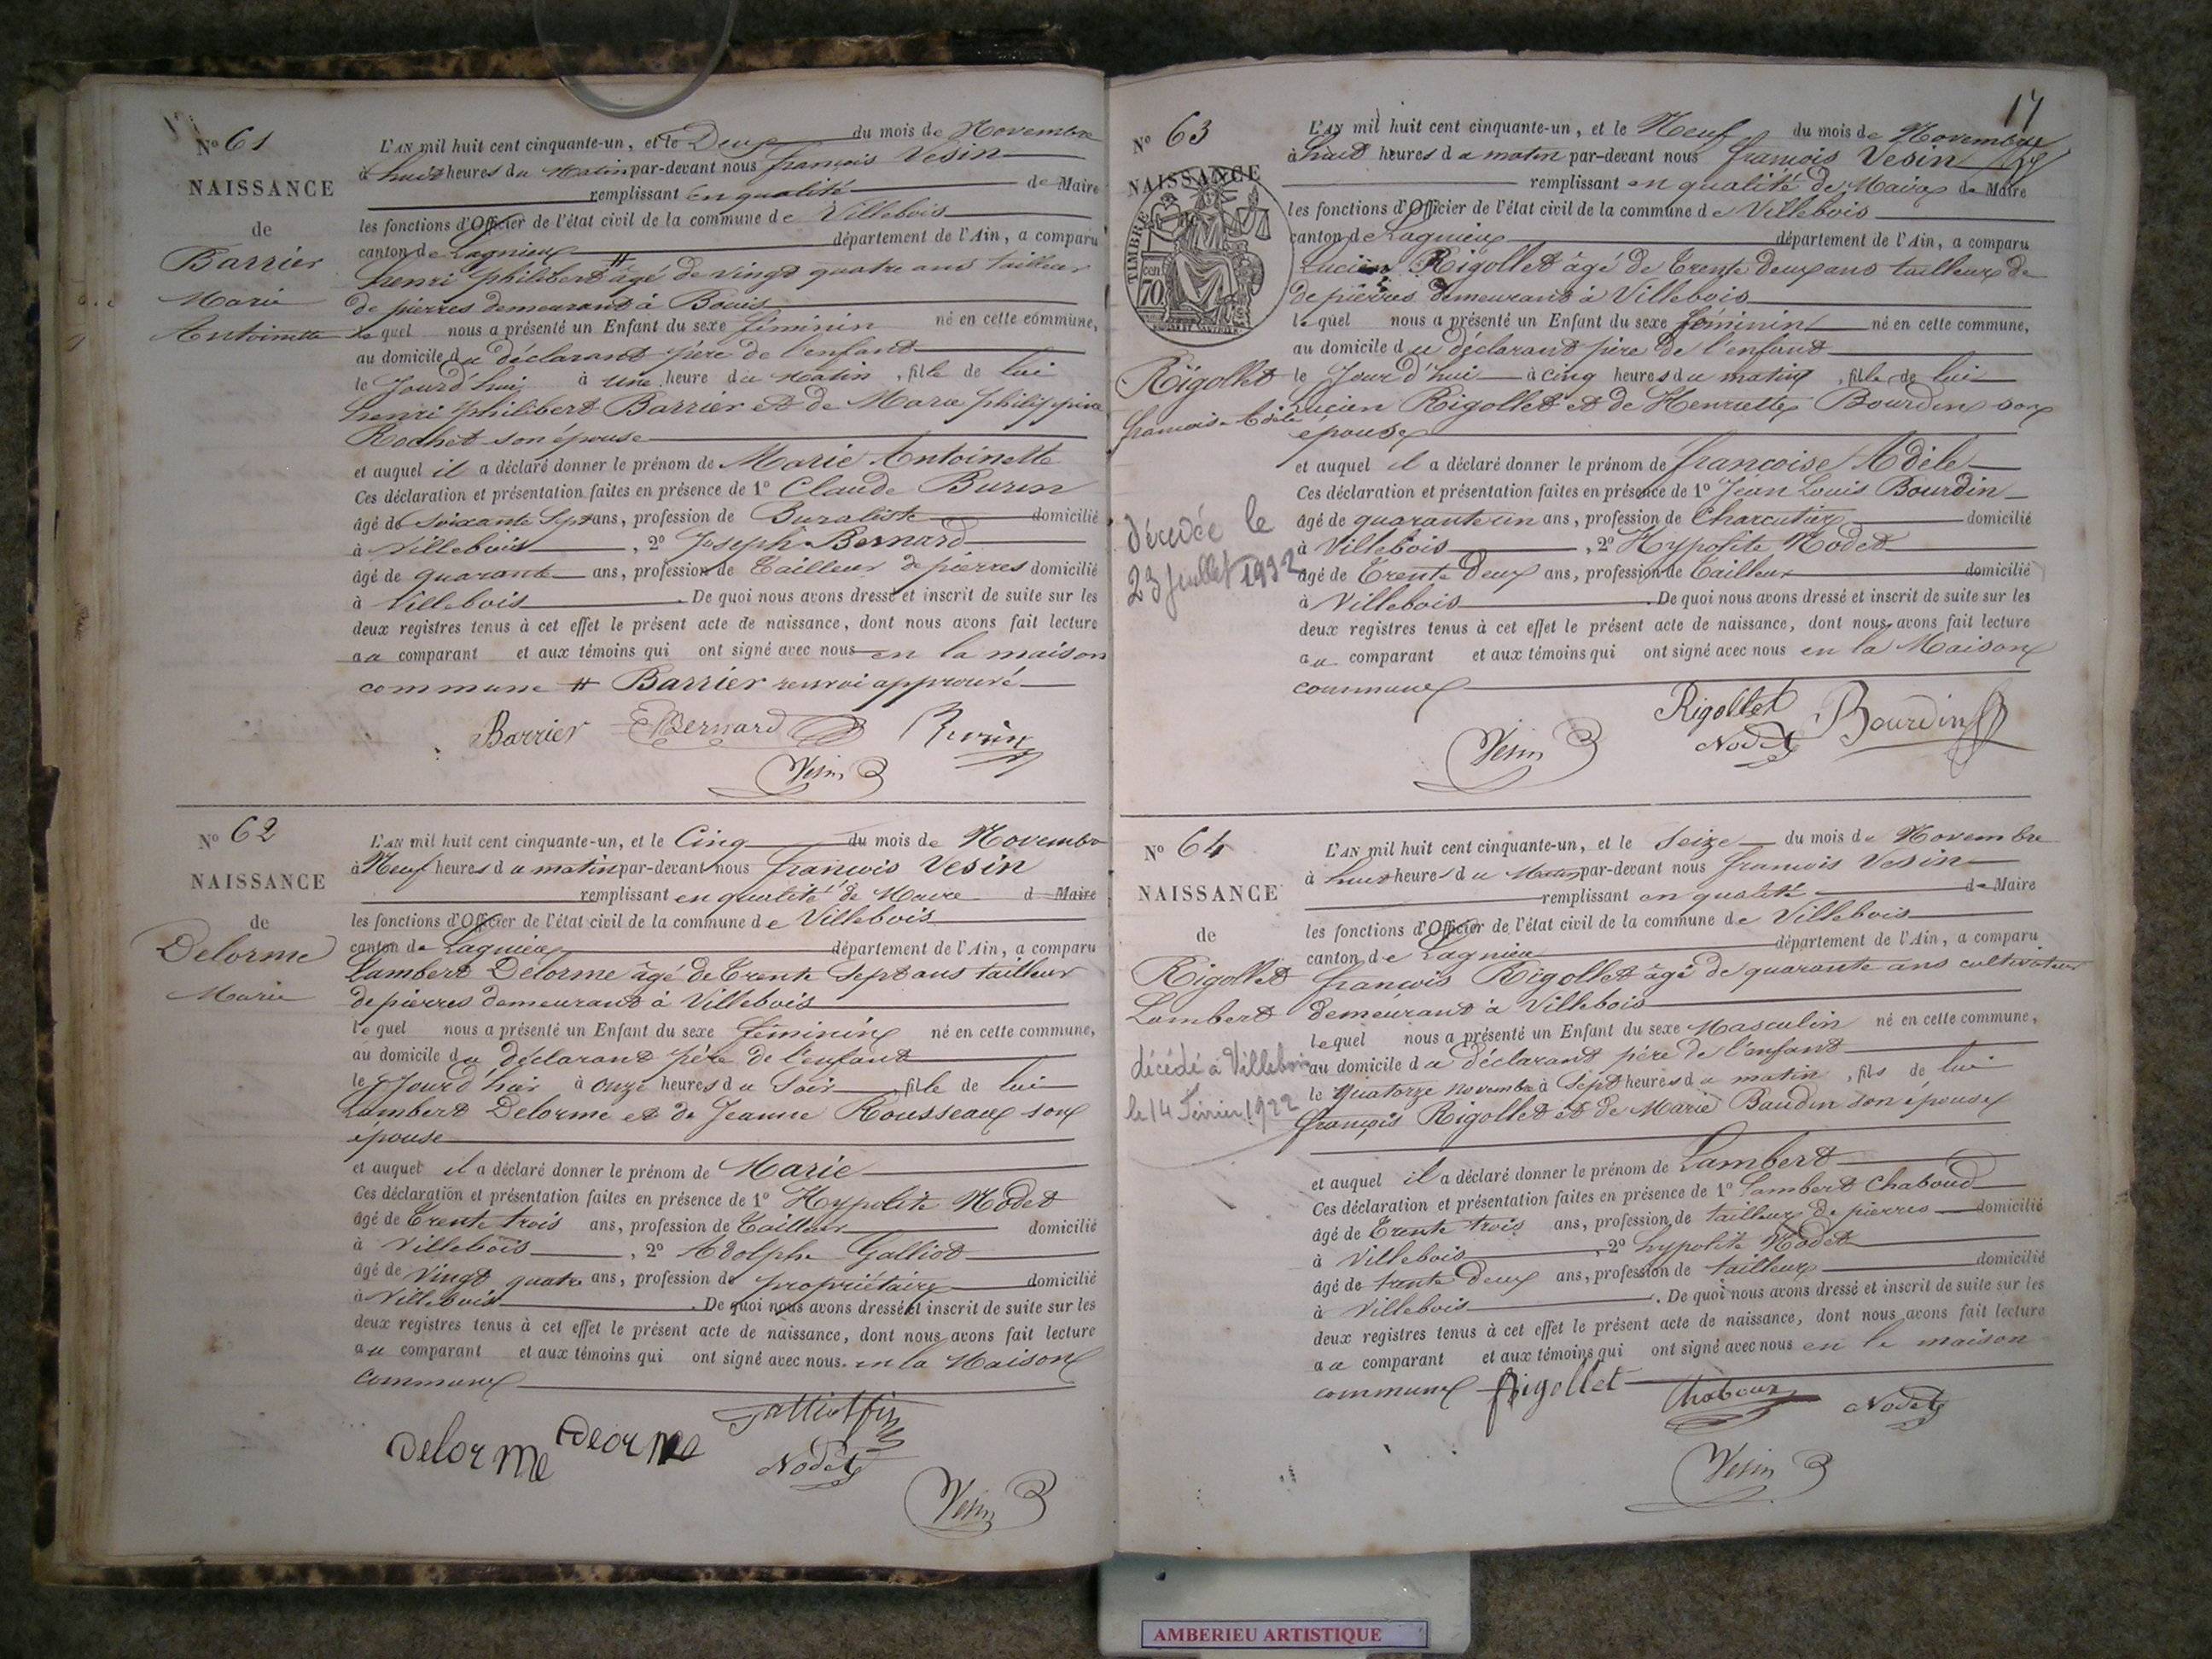 No 61
NAISSANCE
de
Barrier
Marie
Antoinette
L'AN mil huit cent cinquante-un, et le Deux du mois de Novembre
à huit heures du Matin par-devant nous françois Vesin
remplissant en qualité de Maire
les fonctions d'Officier de l'état civil de la commune de Villebois
canton de Lagnieu département de l'Ain, a comparu
henri philibert # âgé de vingt quatre ans tailleur
de pierres demeurant à Bouis
lequel nous a présenté un Enfant du sexe féminin né en cette commune,
au domicile du déclarant père de l'enfant
le Jourd'hui à une heure du Matin, fille de lui
henri philibert Barrier et de Marie philippine
Rochet son épouse
et auquel il a déclaré donner le prénom de Marie Antoinette
Ces déclaration et présentation faites en présence de 1° Claude Burin
âgé de soixante Sept ans, profession de Buraliste domicilié
à Villebois, 2° Joseph Bernard
âgé de quarante ans, profession de Tailleur de pierres domicilié
à Villebois. De quoi nous avons dressé et inscrit de suite sur les
deux registres tenus à cet effet le présent acte de naissance, dont nous avons fait lecture
au comparant et aux témoins qui ont signé avec nous en la maison
commune # Barrier renvoi approuvé
Barrier Bernard Burin
Vesin
No 62
NAISSANCE
de
Delorme
Marie
L'AN mil huit cent cinquante-un, et le Cinq du mois de Novembre
à Neuf heures du matin par-devant nous françois Vesin
remplissant en qualité de Maire d Maire
les fonctions d'Officier de l'état civil de la commune de Villebois
canton de Lagnieu département de l'Ain, a comparu
Lambert Delorme âgé de Trente Sept ans tailleur
de pierres demeurant à Villebois
lequel nous a présenté un Enfant du sexe féminin né en cette commune,
au domicile du déclarant père de l'enfant
le Jourd'hui à onze heures du Soir, fille de lui
Lambert Delorme et de Jeanne Rousseau son
épouse
et auquel il a déclaré donner le prénom de Marie
Ces déclaration et présentation faites en présence de 1° Hypolite Nodet
âgé de Trente trois ans, profession de Tailleur domicilié
à Villebois, 2° Adolphe Galliot
âgé de Vingt quatre ans, profession de propriétaire domicilié
à Villebois. De quoi nous avons dressé et inscrit de suite sur les
deux registres tenus à cet effet le présent acte de naissance, dont nous avons fait lecture
au comparant et aux témoins qui ont signé avec nous. en la Maison
commune
Delorme Deorme Galliot fils
Nodet
Vesin
17
No 63
NAISSANCE
TIMBRE
cen
70
Rigollet
francois-Adèle
décédée le
23 juillet 1932
L'AN mil huit cent cinquante-un, et le Neuf du mois de Novembre
à huit heures du matin par-devant nous françois Vesin
remplissant en qualité de Maire de Maire
les fonctions d'Officier de l'état civil de la commune de Villebois
canton de Lagnieu département de l'Ain, a comparu
Lucien Rigollet âgé de Trente deux ans tailleur de
de pierres demeurant à Villebois
lequel nous a présenté un Enfant du sexe féminin né en cette commune,
au domicile du déclarant père de l'enfant
le Jour d'hui à cinq heures du matin, fille de lui
Lucien Rigollet et de Henriette Bourdin son
épouse
et auquel il a déclaré donner le prénom de françoise Adèle
Ces déclaration et présentation faites en présence de 1° Jean Louis Bourdin
âgé de quarante un ans, profession de Charcutier domicilié
à Villebois, 2° Hypolite Nodet
âgé de Trente Deux ans, profession de Tailleur domicilié
à Villebois. De quoi nous avons dressé et inscrit de suite sur les
deux registres tenus à cet effet le présent acte de naissance, dont nous avons fait lecture
au comparant et aux témoins qui ont signé avec nous en la Maison
commune
Rigollet Bourdin
Vesin Nodet
No 64
NAISSANCE
de
Rigollet
Lambert
décédé à Villebois
le 14 Février 1922
L'AN mil huit cent cinquante-un, et le Seize du mois de Novembre
à huit heures du Matin par-devant nous françois Vesin
remplissant en qualité de Maire
les fonctions d'Officier de l'état civil de la commune de Villebois
canton de Lagnieu département de l'Ain, a comparu
françois Rigollet âgé de quarante ans cultivateur
demeurant à Villebois
lequel nous a présenté un Enfant du sexe Masculin né en cette commune,
au domicile du déclarant père de l'enfant
le Quatorze novembre à Sept heures du matin, fils de lui
françois Rigollet et de Marie Baudin son épouse
et auquel il a déclaré donner le prénom de Lambert
Ces déclaration et présentation faites en présence de 1° Lambert Chaboud
âgé de Trente trois ans, profession de tailleur de pierres domicilié
à Villebois, 2° hypolite Nodet
âgé de trente Deux ans, profession de tailleur domicilié
à Villebois. De quoi nous avons dressé et inscrit de suite sur les
deux registres tenus à cet effet le présent acte de naissance, dont nous avons fait lecture
au comparant et aux témoins qui ont signé avec nous en la maison
commune Rigollet Chaboud Nodet
Vesin
AMBERIEU ARTISTIQUE